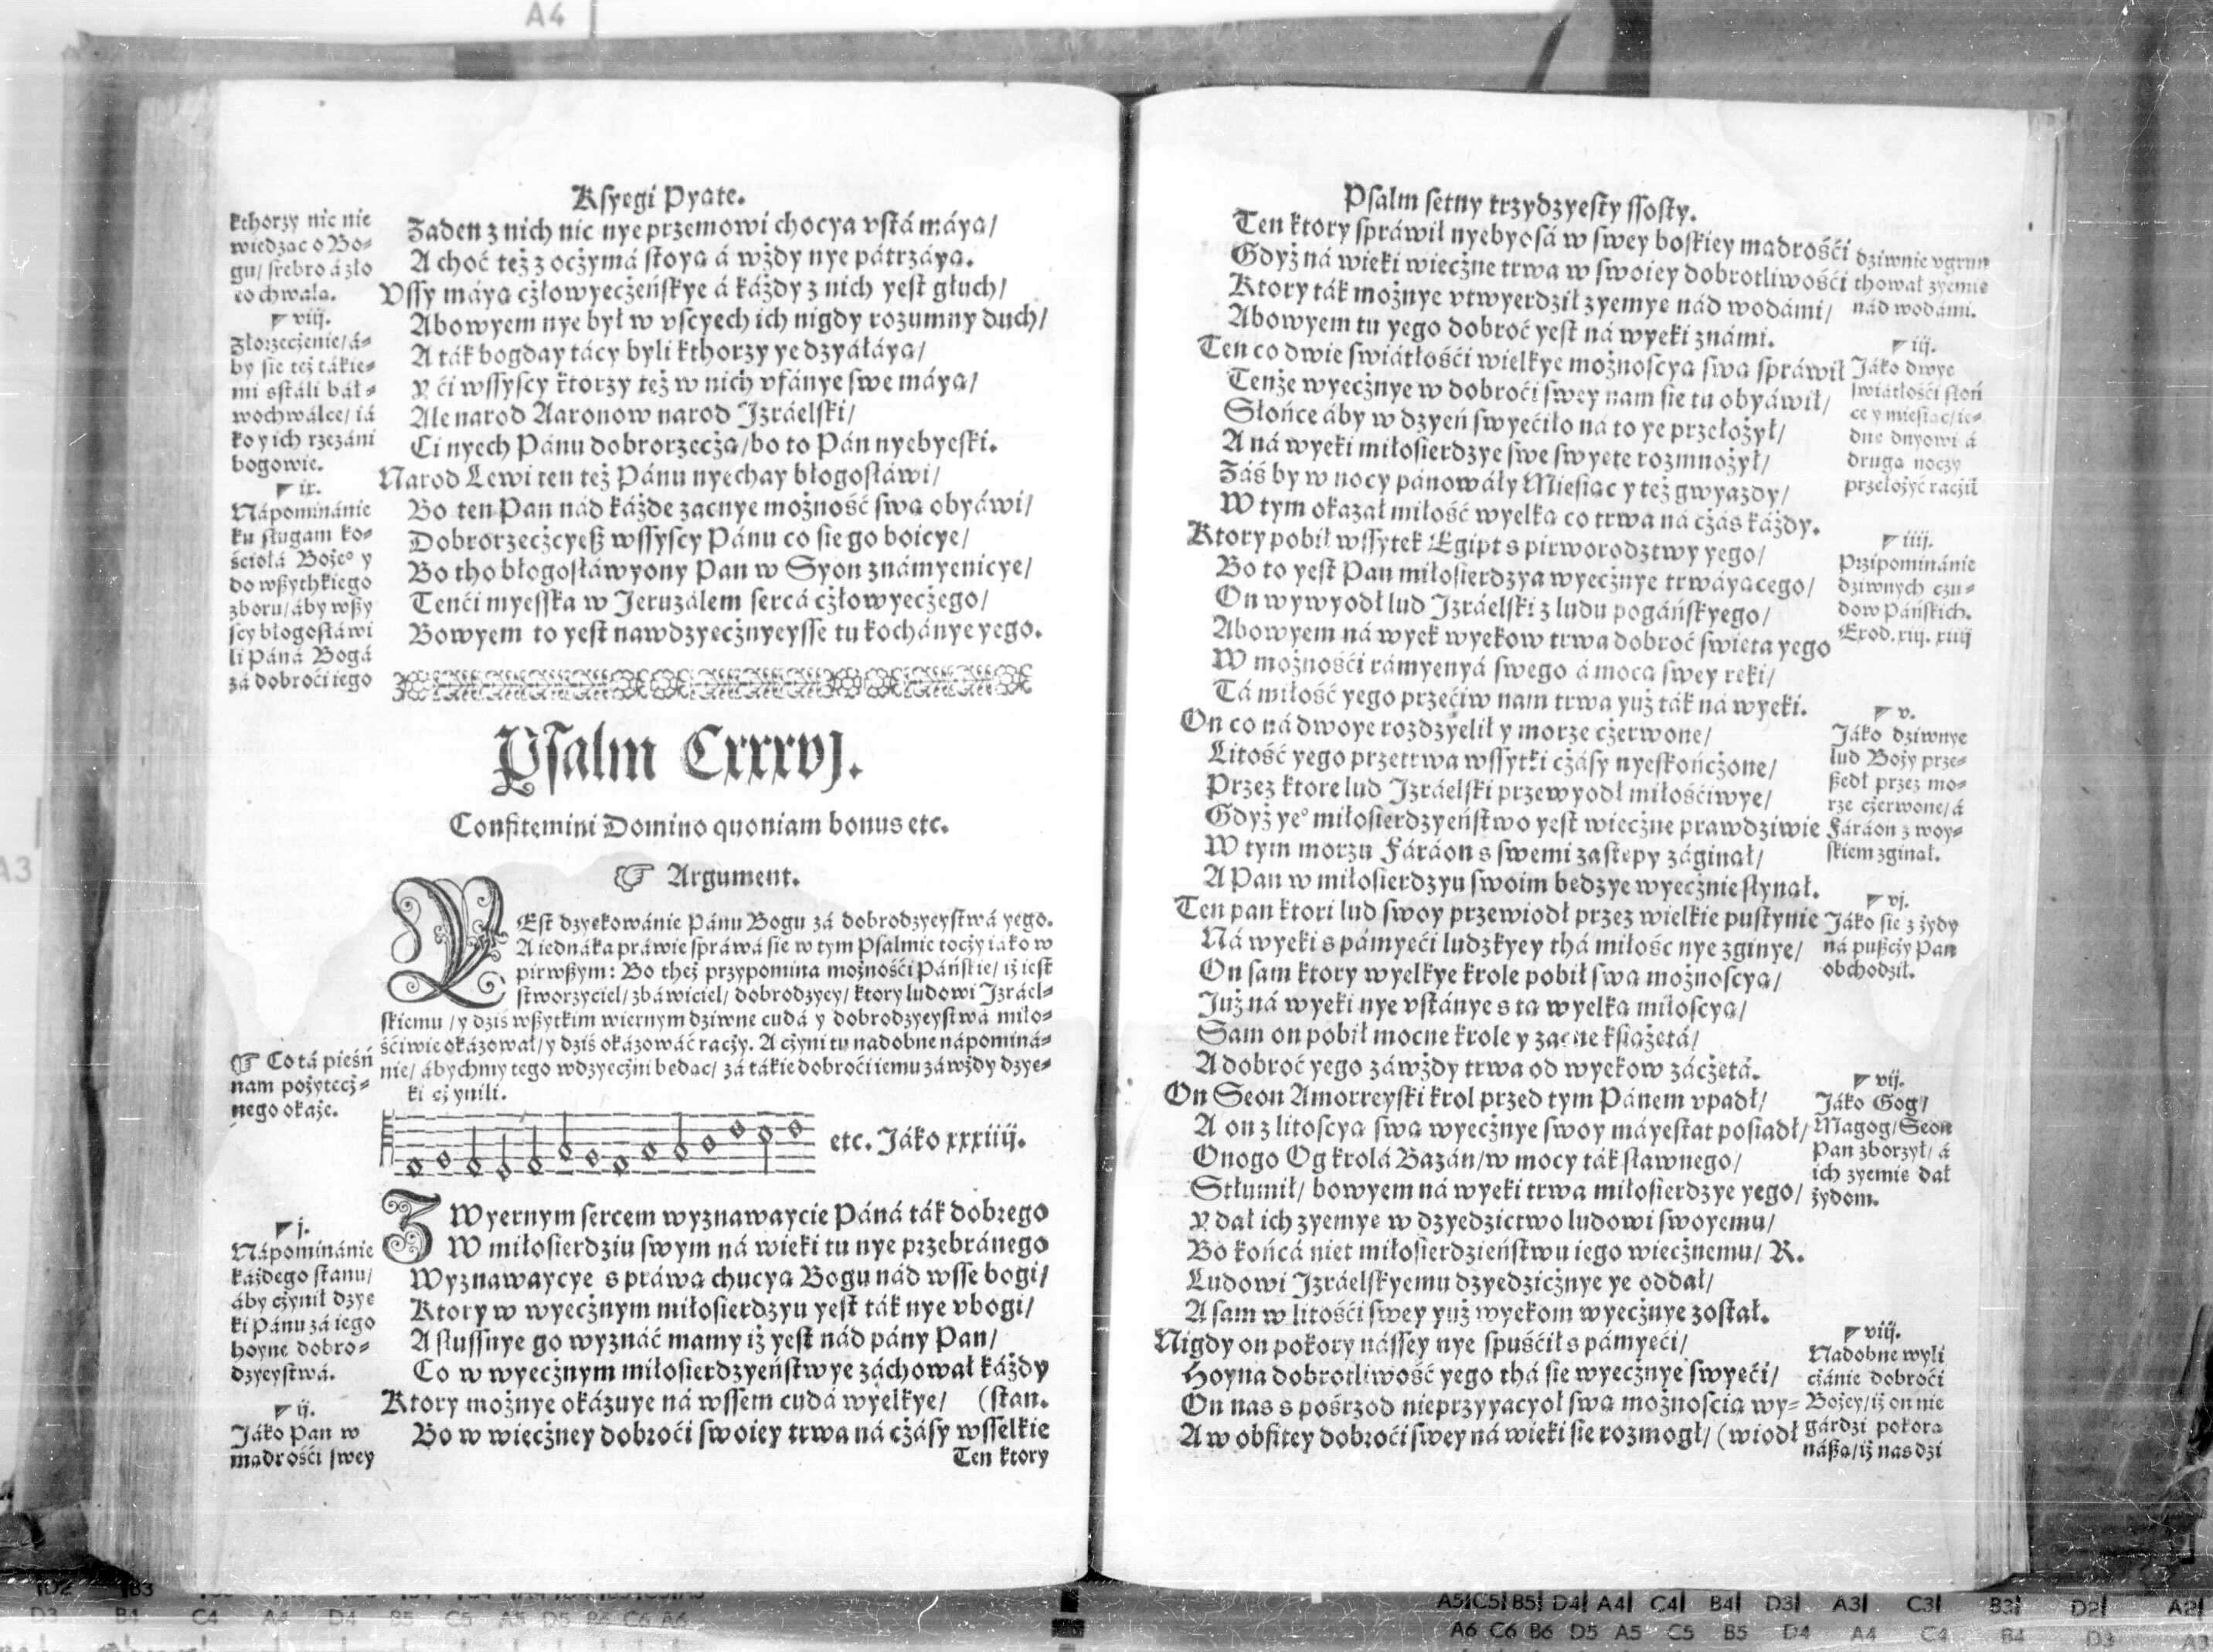 Ksyegi Pyate.
kthorzy nic nie
wiedząc o Bo⸗
gu/ srebro á zło
to chwalą.
viij.
Złorzeczenie/ á⸗
by sie też tákie⸗
mi sstáli bał⸗
wochwálce/ iá
ko y ich rzezáni
bogowie.
ix.
Nápominánie
ku sługam ko⸗
ściołá Bożeº y
do wßythkiego
zboru/ áby wßy
scy błogosłáwi
li Páná Bogá
zá dobroći iego
Żaden z nich nic nye przemowi chocya vstá máyą/
A choć też z oczymá stoyą á wżdy nye pátrzáyą.
Vssy máyą człowyeczeńskye á káżdy z nich yest głuch/
Abowyem nye był w vscyech ich nigdy rozumny duch/
A ták bogday tácy byli kthorzy ye dzyáłáyą/
Y ći wssyscy ktorzy też w nich vfánye swe máyą/
Ale narod Aaronow narod Izráelski/
Ci nyech Pánu dobrorzeczą/ bo to Pán nyebyeski.
Narod Lewi ten też Pánu nyechay błogosłáwi/
Bo ten Pan nád káżde zacnye możność swą obyáwi/
Dobrorzeczcyeß wssyscy Pánu co sie go boicye/
Bo tho błogosłáwyony Pan w Syon známyenicye/
Tenći myesska w Jeruzálem sercá człowyeczego/
Bowyem to yest nawdzyecznyeysse tu kochánye yego.
Psalm Cxxxvj.
Confitemini Domino quoniam bonus etc.
☞ Argument.
YEst dzyekowánie Pánu Bogu zá dobrodzyeystwá yego.
A iednáka práwie spráwá sie w tym Psalmie toczy iáko w
pirwßym: Bo theż przypomina możnośći Páńskie/ iż iest
stworzyciel/ zbáwiciel/ dobrodzyey/ ktory ludowi Izráel⸗
skiemu / y dziś wßytkim wiernym dziwne cudá y dobrodzyeystwá miło⸗
śćiwie okázował/ y dziś okázowáć raczy. A czyni tu nadobne nápominá⸗
nie/ ábychmy tego wdzyeczni bedąc/ zá tákie dobroći iemu záwżdy dzye⸗
ki czynili.
☞ Co tá pieśń
nam pożytecz⸗
nego okaże.
etc. Jáko xxxiiij.
j.
Nápominánie
káżdego stanu/
áby czynił dzye
ki Pánu zá iego
hoyne dobro⸗
dzyeystwá.
ij.
Jáko Pan w
mądrośći swey
Z Wyernym sercem wyznawaycie Páná ták dobrego
W miłosierdziu swym ná wieki tu nye przebránego
Wyznawaycye s práwą chucyą Bogu nád wsse bogi/
Ktory w wyecznym miłosierdzyu yest ták nye vbogi/
A słussnye go wyznáć mamy iż yest nád pány Pan/
Co w wyecznym miłosierdzyeństwye záchował káżdy
Ktory możnye okázuye ná wssem cudá wyelkye/ (stan.
Bo w wieczney dobroći swoiey trwa ná czásy wsselkie
Ten ktory
Psalm setny trzydzyesty ssosty.
Ten ktory spráwił nyebyosá w swey boskiey mądrośći
Gdyż ná wieki wieczne trwa w swoiey dobrotliwośći
Ktory ták możnye vtwyerdził zyemye nád wodámi/
Abowyem tu yego dobroć yest ná wyeki známi.
Ten co dwie swiátłośći wielkye możnoscyą swą spráwił
Tenże wyecznye w dobroći swey nam sie tu obyáwił/
Słońce áby w dzyeń swyećiło ná to ye przełożył/
A ná wyeki miłosierdzye swe swyete rozmnożył/
Záś by w nocy pánowáły Miesiąc y też gwyazdy/
W tym okazał miłość wyelką co trwa ná czás káżdy.
Ktory pobił wssytek Egipt s pirworodztwy yego/
Bo to yest Pan miłosierdzya wyecznye trwáyącego/
On wywyodł lud Izráelski z ludu pogáńskyego/
Abowyem ná wyek wyekow trwa dobroć swieta yego
W możnośći rámyenyá swego á mocą swey reki/
Tá miłość yego przećiw nam trwa yuż ták ná wyeki.
On co ná dwoye rozdzyelił y morze czerwone/
Litość yego przetrwa wssytki czásy nyeskończone/
Przez ktore lud Izráelski przewyodł miłośćiwye/
Gdyż yeº miłosierdzyeństwo yest wieczne prawdziwie
W tym morzu Fáráon s swemi zastepy záginął/
A Pan w miłosierdzyu swoim bedzye wyecznie słynął.
Ten pan ktori lud swoy przewiodł przez wielkie pustynie
Ná wyeki s pámyeći ludzkyey thá miłość nye zginye/
On sam ktory wyelkye krole pobił swą możnoscyą/
Już ná wyeki nye vstánye s tą wyelką miłoscyą/
Sam on pobił mocne krole y zacne książetá/
A dobroć yego záwżdy trwa od wyekow záczetá.
On Seon Amorreyski krol przed tym Pánem vpadł/
A on z litoscyą swą wyecznye swoy máyestat posiadł/
Onogo Og krolá Bazán/ w mocy ták sławnego/
Stłumił/ bowyem ná wyeki trwa miłosierdzye yego/
Y dał ich zyemye w dzyedzictwo ludowi swoyemu/
Bo końcá niet miłosierdzieństwu iego wiecznemu/ R.
Ludowi Izráelskyemu dzyedzicznye ye oddał/
A sam w litośći swey yuż wyekom wyecznye został.
Nigdy on pokory nássey nye spuśćił s pámyeći/
Hoyna dobrotliwość yego thá sie wyecznye swyeći/
On nas s pośrzod nieprzyyacyoł swą możnoscią wy⸗
A w obfitey dobroći swey ná wieki sie rozmogł/ (wiodł
dziwnie vgrun
thował zyemie
nád wodámi.
iij.
Jáko dwye
swiátłośći słoń
ce y miesiąc/ ie⸗
dne dnyowi á
drugą noczy
przełożyć racził
iiij.
Przipominánie
dziwnych czu⸗
dow Páńskich.
Exod. xiij. xiiij
v.
Jáko dziwnye
lud Boży prze⸗
ßedł przez mo⸗
rze czerwone/ á
Fáráon z woy⸗
skiem zginął.
vj.
Jáko sie z żydy
ná pußczy Pan
obchodził.
vij.
Jáko Gog/
Magog/ Seon
Pan zborzył/ á
ich zyemie dał
żydom.
viij.
Nadobne wyli
czánie dobroći
Bożey/ iż on nie
gárdzi pokorą
náßą/ iż nas dzi